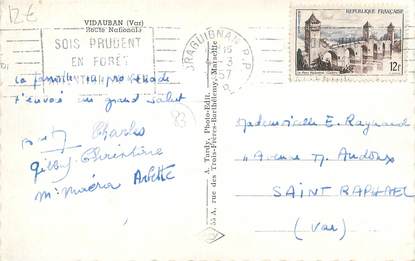 12€
VIDAUBAN (Var)
Route Nationale
SOIS PRUDENT
EN FORÊT
DRAGUIGNAN P.P.
15
3
57
REPUBLIQUE FRANÇAISE
12F
La famille en promenade
t'envoi un grand salut
Charles
Gilbert Christiane
Mr Maéra Arlette
83
A. Tardy, Photo-Edit.
55 A, rue des Trois-Frères-Barthélemy, Marseille
Mademoiselle E. Raynaud
Avenue M. Audoux
SAINT RAPHAEL
(Var)